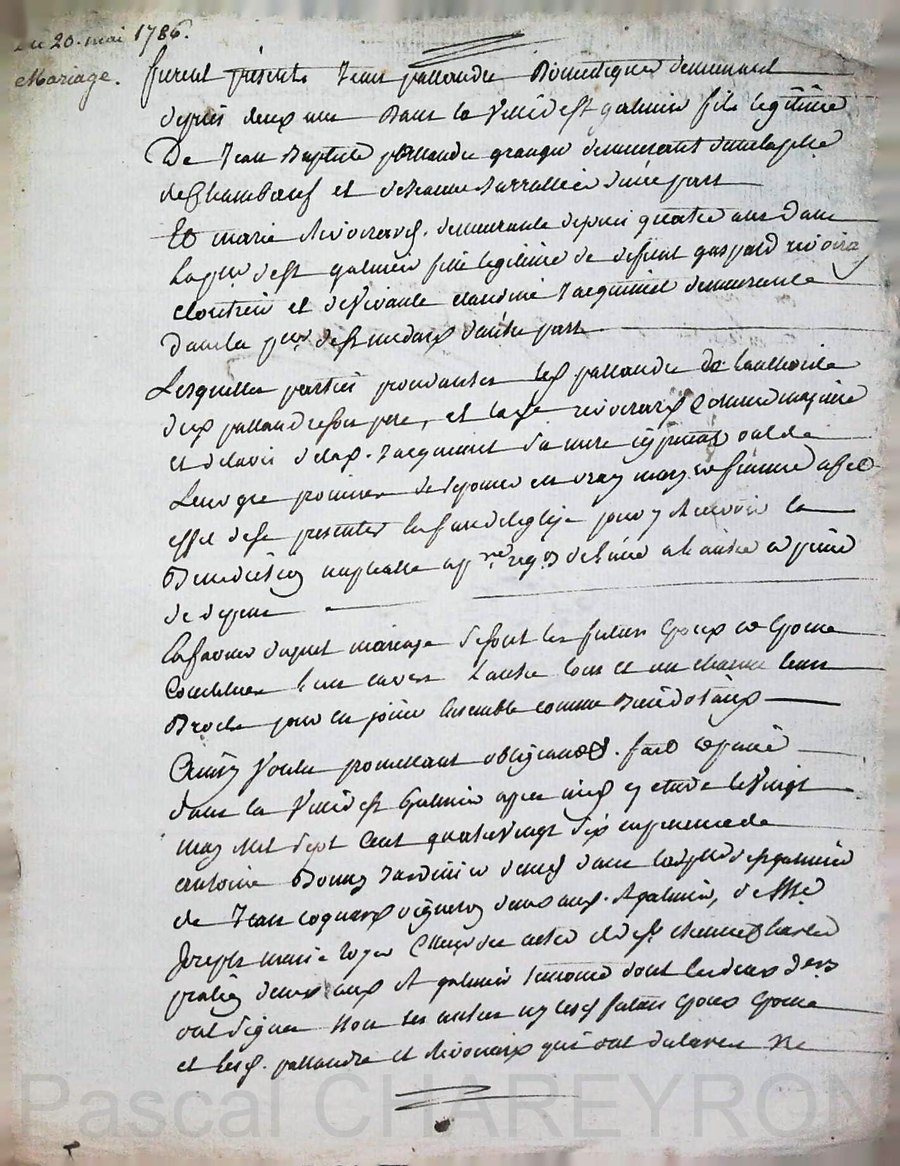 20. mai 1786.
Mariage.
furent présents Jean pallandre Domestique demeurant
depuis deux ans Dans la Ville de st galmier fils légitime
De Jean Baptiste pallandre granger demeurant dans la psse
de Chambœuf et de Jeanne d'une part
Et marie Rivoirard. demeurante depuis quatre ans Dans
La psse de st galmier fille légitime de defunt gaspard rivoirard
cloutier et de Vivante claudine Jacquemet demeurante
dans la psse de st medard d'autre part
Lesquelles parties procedantes led pallandre de l'authorité
dud pallandre son pere, et lade rivoirard Comme majeure
et de lavis de lad. Jacquemet sa mere icy presents ont de
Leur gré promis de sepouser en vray mary et femme a cet
effet de se presenter En face deglise pour y Recevoir la
Benediction nuptiale a peine
de depens
En faveur duquel mariage se sont les futurs Epoux et Epouse
Constitués l'un envers L'autre tous et un chacun leurs
Droits pour en jouir Ensemble comme Biens dotaux
Ainsy Voulu promettant obligeant. fait et passé
dans la Ville de st Galmier apres midy en etude le Vingt
may Mil Sept Cent quatre vingt Six en presence de
antoine Jardinier demt dans la psse de st galmier
de Jean coquard vigneron demt aud. St galmier, de Me
Joseph marie royer
praticien demt aud St galmier temoins dont les deux Ders
ont Signés Non les autres ny lesd futurs Epoux Epouse
et lesd. pallandre et Rivoirard qui ont declaré Ne
Pascal CHAREYRON